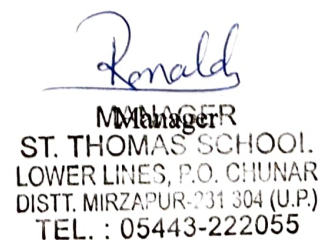 Ronald
MANAGER
Manager
ST. THOMAS SCHOOL
LOWER LINES, P.O. CHUNAR
DISTT. MIRZAPUR-231 304 (U.P.)
TEL. : 05443-222055